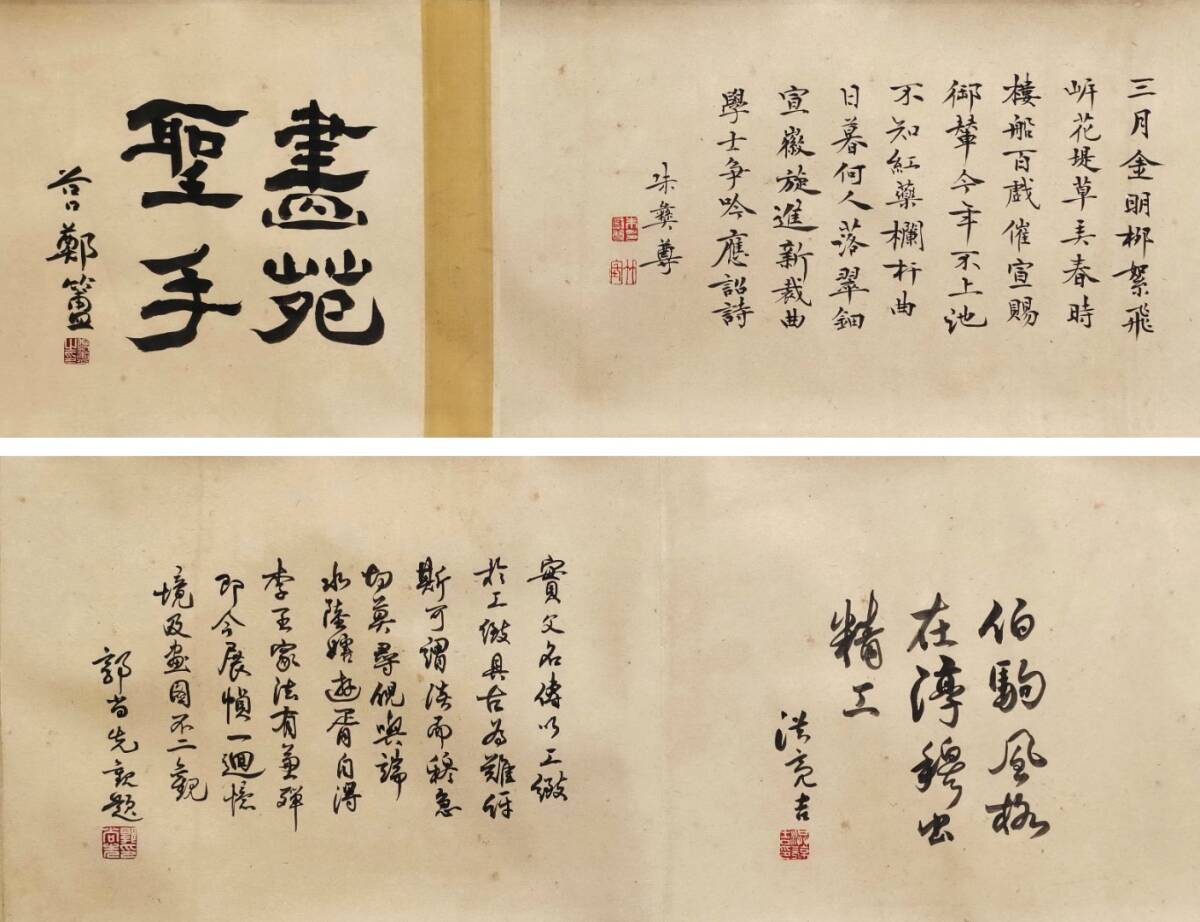 三月金明柳絮飛
岍花堤草弄春時
樓船百戲催宣賜
御輦今年不上池
不知紅藥欄杆曲
日暮何人落翠鈿
宣徽旋進新裁曲
學士爭吟應詔詩
朱彝尊
畫苑
聖手
谷口鄭簠
伯駒風格
在淳穆出
精工
洪亮吉
實父名傳以工緻
於工緻具古為難能
斯可謂淡而穆急
切莫尋硯與端
水陸嬉遊胥自得
李王家法有兼殫
即今展幀一迴憶
境及畫圖不二觀
郭尚先敬題